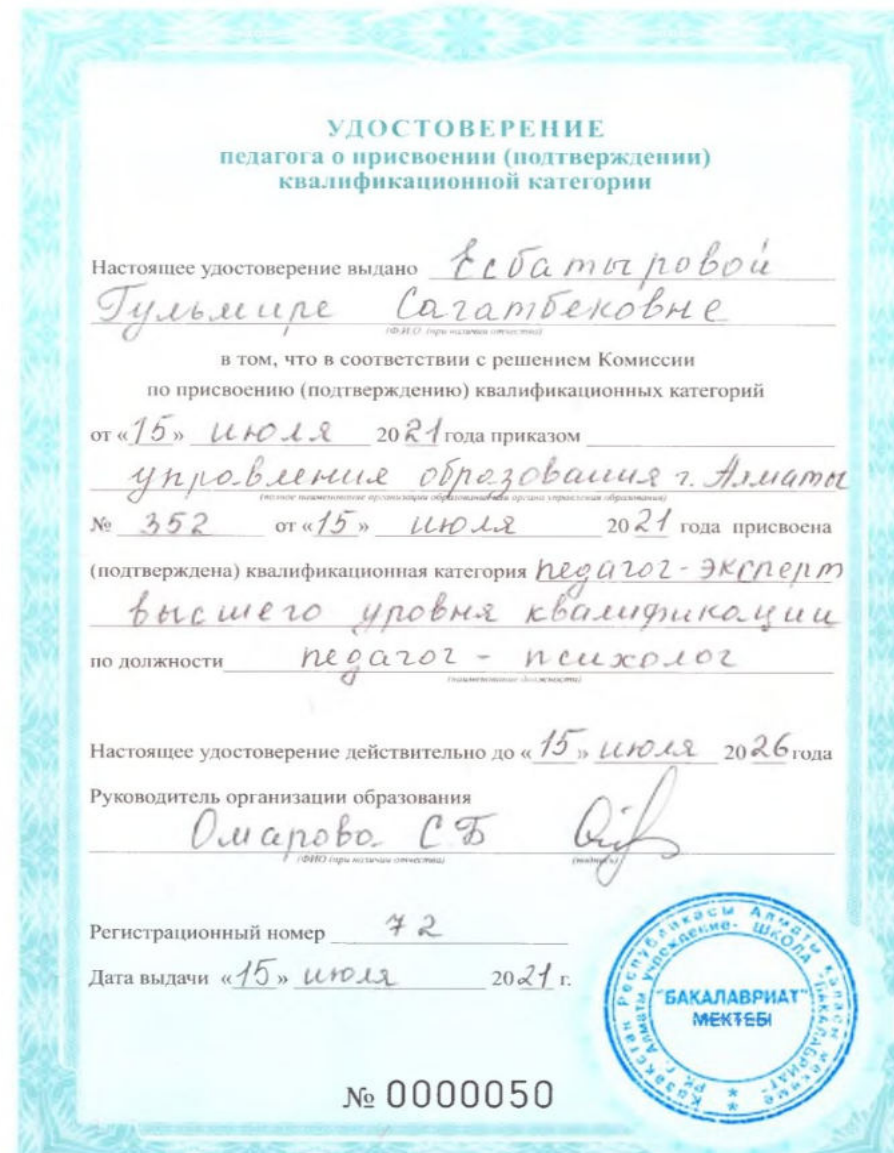 УДОСТОВЕРЕНИЕ
педагога о присвоении (подтверждении)
квалификационной категории
Настоящее удостоверение выдано Есбатыровой
Гульмире Сагатбековне
(Ф.И.О. (при наличии отчества)
в том, что в соответствии с решением Комиссии
по присвоению (подтверждению) квалификационных категорий
от «15» июля 2021 года приказом
управления образования г. Алматы
(полное наименование организации образования или органа управления образования)
№ 352 от «15» июля 2021 года присвоена
(подтверждена) квалификационная категория педагог-эксперт
высшего уровня квалификации
по должности педагог - психолог
(наименование должности)
Настоящее удостоверение действительно до «15» июля 2026 года
Руководитель организации образования
Омарова С Б
(ФИО (при наличии отчества) (подпись)
Регистрационный номер 72
Дата выдачи «15» июля 2021 г.
№ 0000050
Қазақстан Республикасы Алматы қаласы
РК г. Алматы учреждение- ШКОЛА "БАКАЛАВРИАТ"
"БАКАЛАВРИАТ"
МЕКТЕБІ